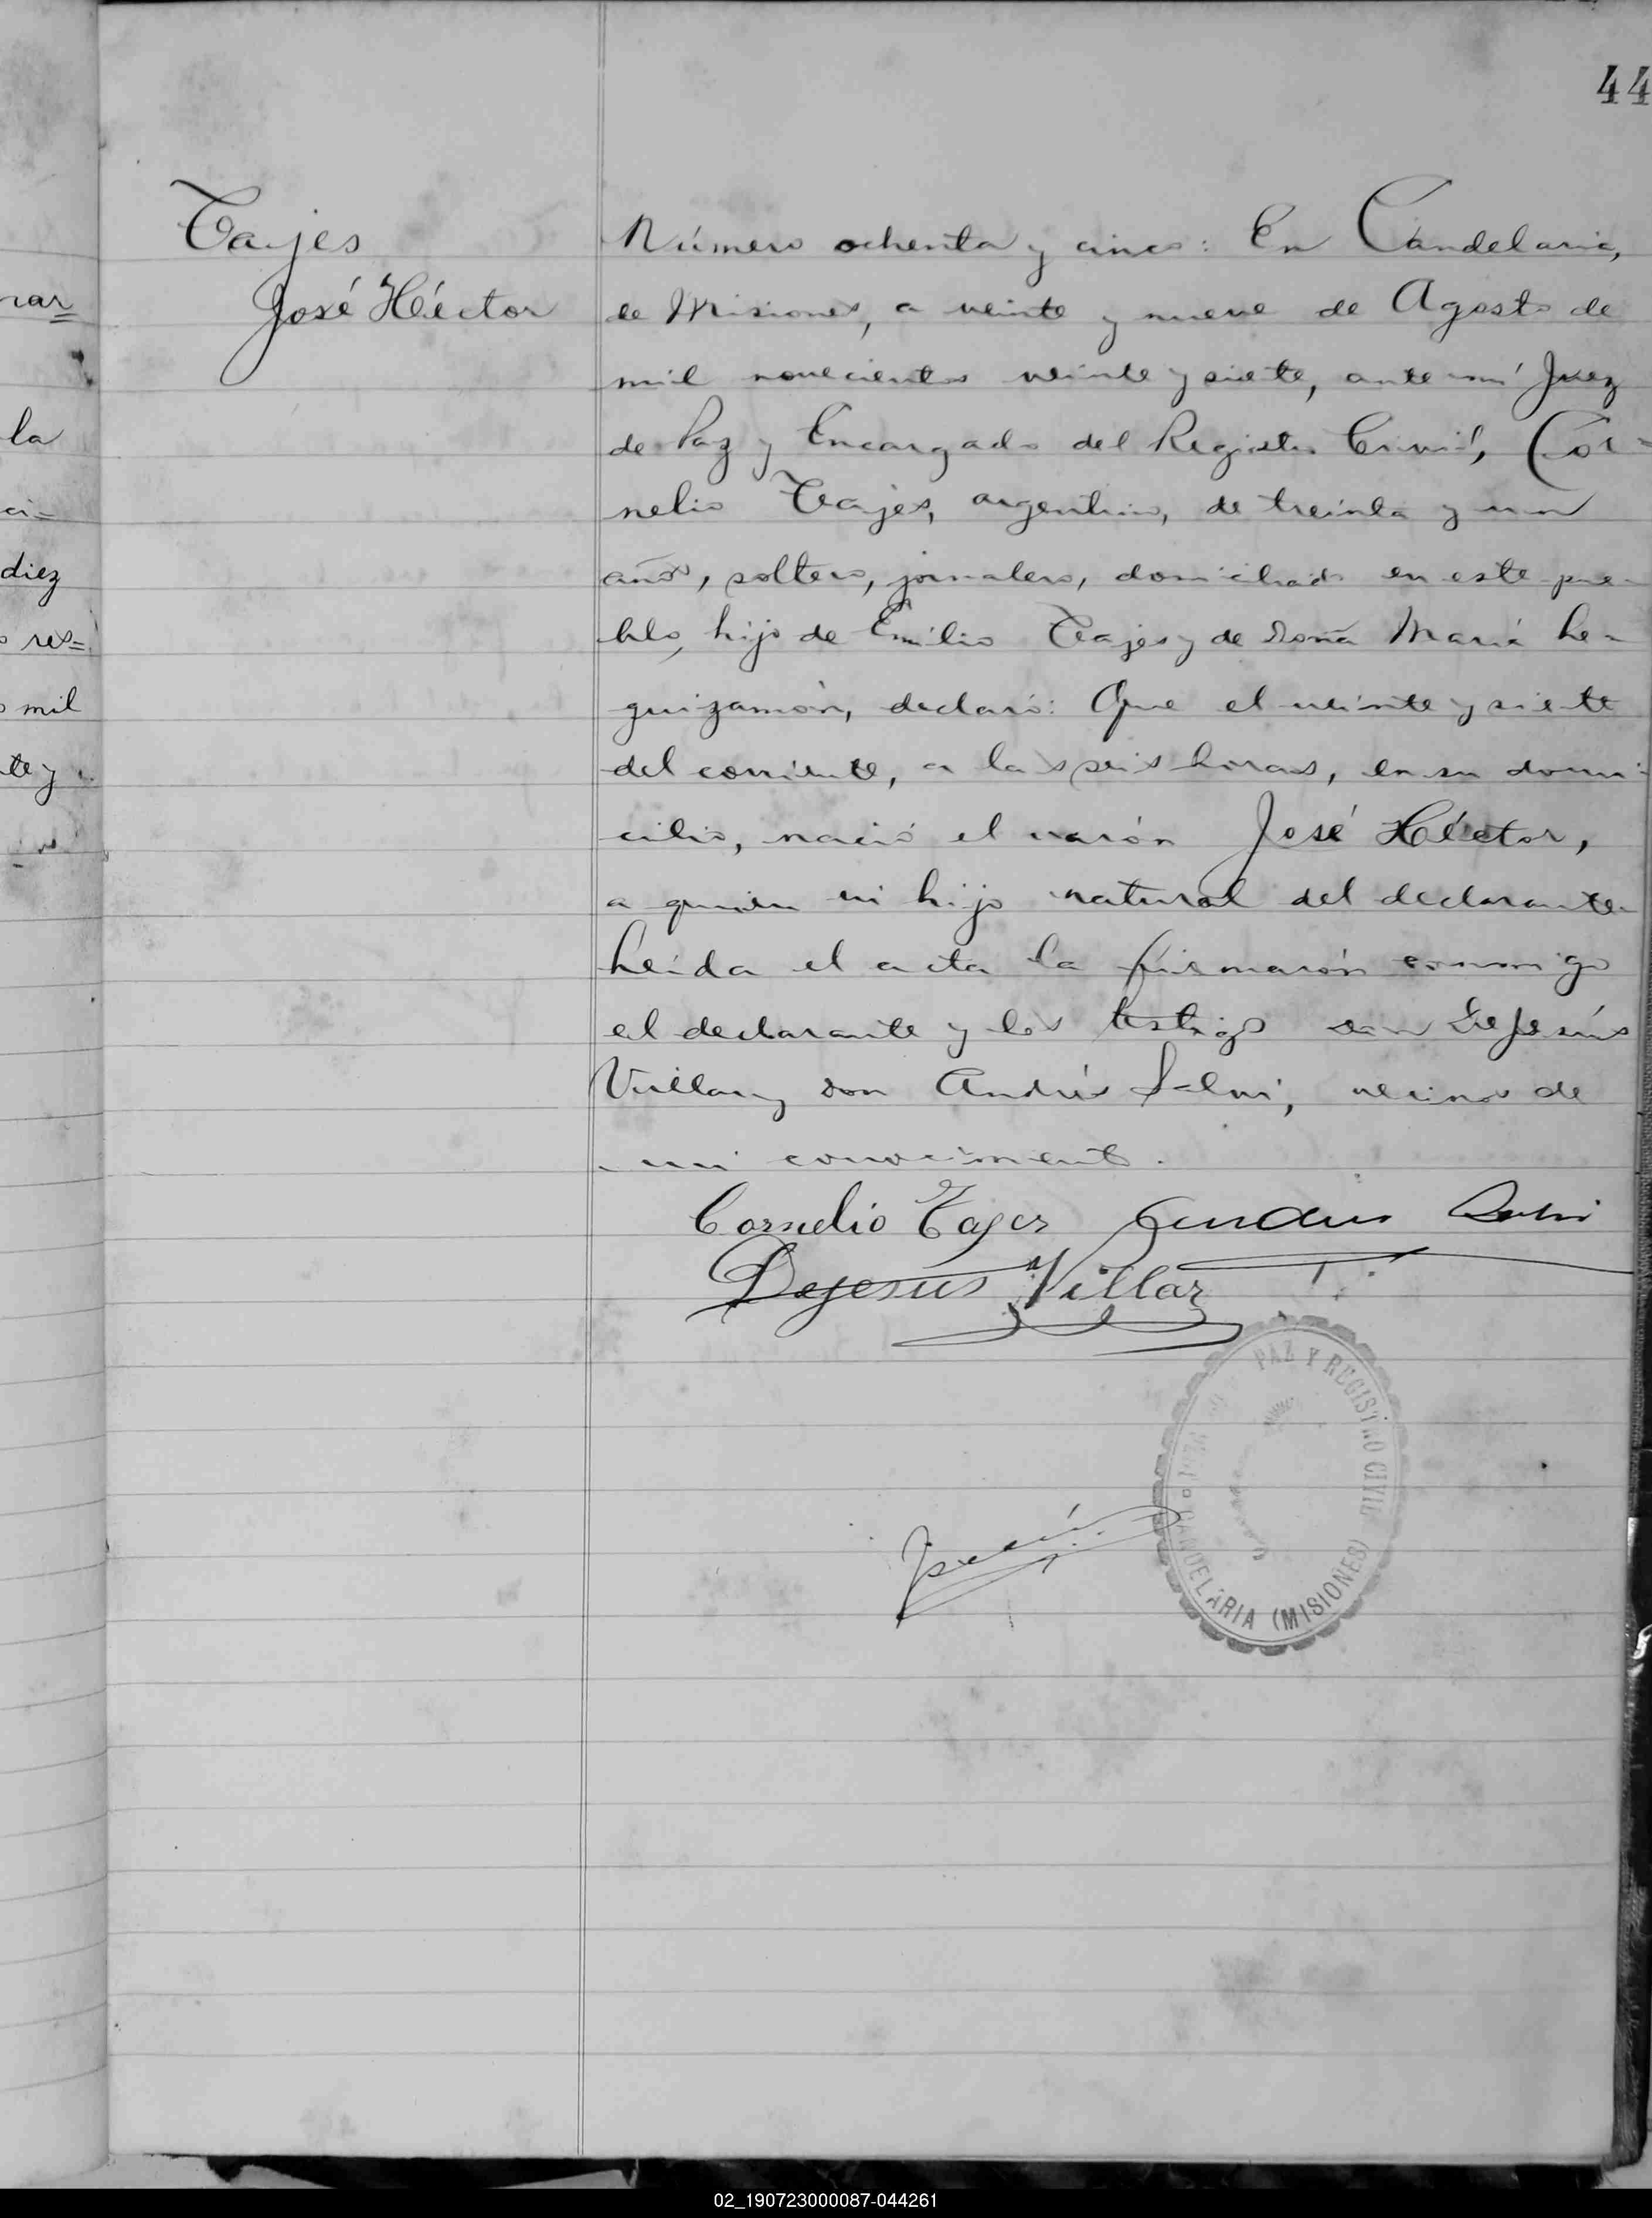 44
Tajes
José Héctor
Número ochenta y cinco: En Candelaria,
de Misiones, a veinte y nueve de Agosto de
mil novecientos veinte y siete, ante mí Juez
de Paz y Encargado del Registro Civil, Cor=
nelio Tajes, argentino, de treinta y un
años, soltero, jornalero, domiciliado en este pue-
blo, hijo de Emilio Tajes y de Doña María Le-
guizamón, declaró: Que el veinte y siete
del corriente, a las seis horas, en su domi-
cilio, nació el varón José Héctor,
a quien hijo natural del declarante.
Leída el acta la firmarón conmigo
el declarante y los testigos don DeJesús
Villar y don Andrés, vecinos de
mi conocimiento.
Cornelio Tajes
Dejesus Villar
PAZ Y REGISTRO CIVIL
CANDELARIA (MISIONES)
nar
la
ci=
diez
res=
mil
te y
02_190723000087-044261